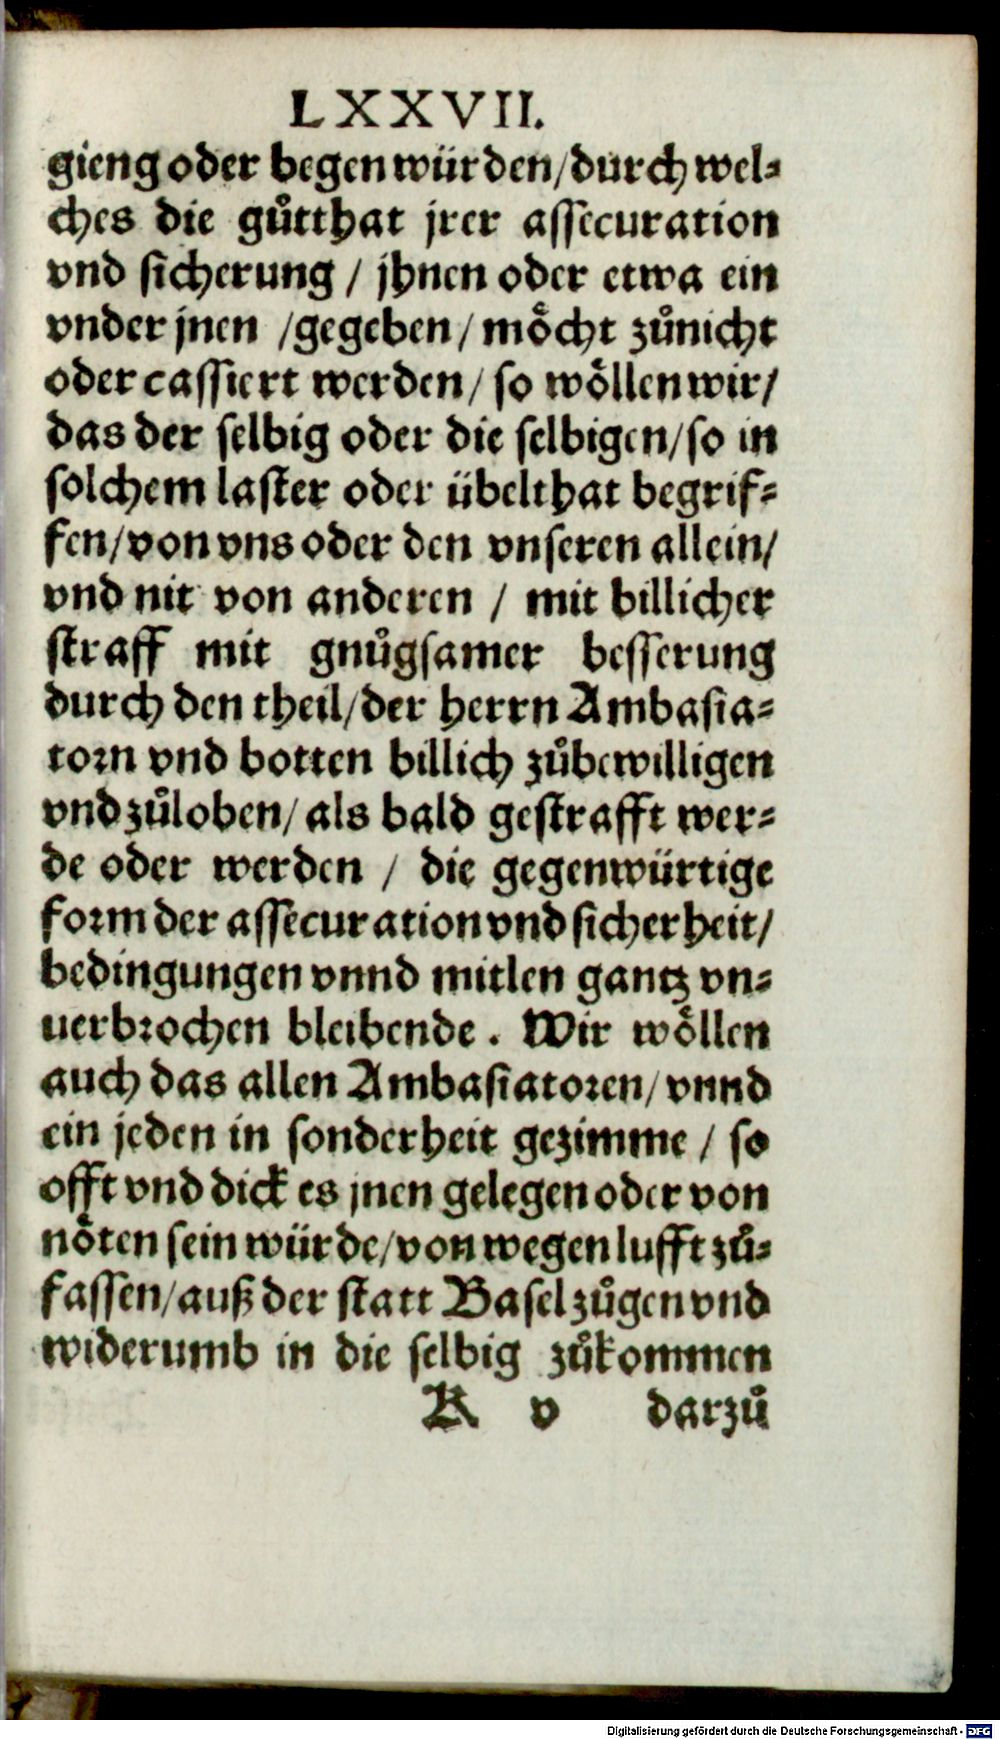 LXXVII.
gieng oder begen würden/durch wel⸗
ches die gůtthat jrer assecuration
vnd sicherung / jhnen oder etwa ein
vnder jnen /gegeben/ möcht zůnicht
oder cassiert werden/ so wöllen wir/
das der selbig oder die selbigen/so in
solchem laster oder übelthat begrif⸗
fen/von vns oder den vnseren allein/
vnd nit von anderen / mit billicher
straff mit gnůgsamer besserung
durch den theil/der herrn Ambasia⸗
torn vnd botten billich zůbewilligen
vnd zůloben/ als bald gestrafft wer⸗
de oder werden / die gegenwürtige
form der assecuration vnd sicherheit/
bedingungen vnnd mitlen gantz vn⸗
uerbrochen bleibende. Wir wöllen
auch das allen Ambasiatoren/ vnnd
ein jeden in sonderheit gezimme / so
offt vnd dick es jnen gelegen oder von
nöten sein würde/von wegen lufft zů⸗
fassen/auß der statt Basel zůgen vnd
widerumb in die selbig zůkommen
K v darzů
Digitalisierung gefördert durch die Deutsche Forschungsgemeinschaft - DFG